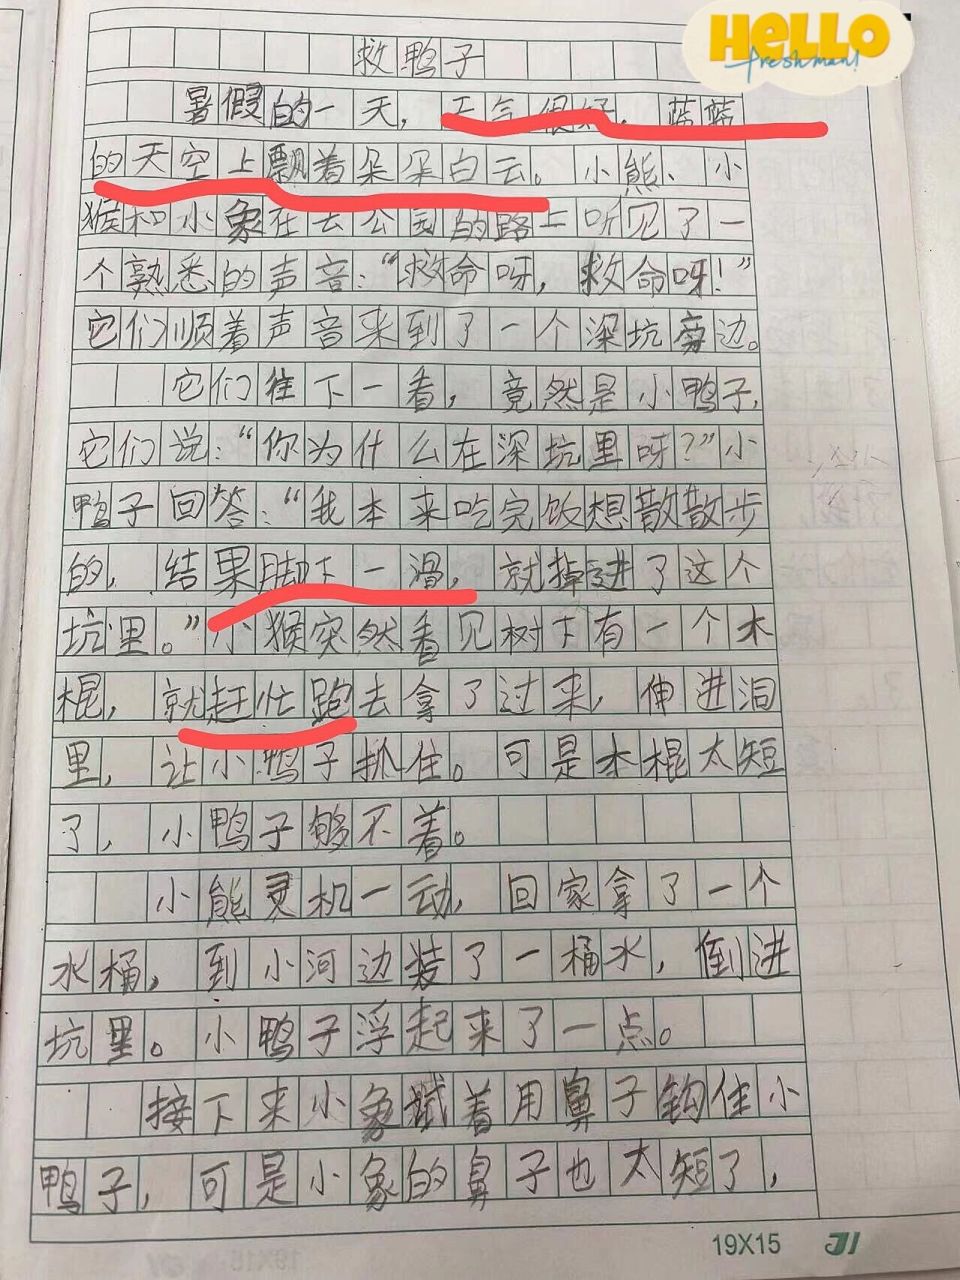 HELLO
freshman!
救鸭子
暑假的一天，天气很好，蓝蓝
的天空上飘着朵朵白云。小熊、小
猴和小象在去公园的路上听见了一
个熟悉的声音：“救命呀，救命呀！”
它们顺着声音来到了一个深坑旁边。
它们往下一看，竟然是小鸭子，
它们说：“你为什么在深坑里呀？”小
鸭子回答：“我本来吃完饭想散散步
的，结果脚下一滑，就掉进了这个
坑里。”小猴突然看见树下有一个木
棍，就赶忙跑去拿了过来，伸进洞
里，让小鸭子抓住。可是木棍太短
了，小鸭子够不着。
小熊灵机一动，回家拿了一个
水桶，到小河边装了一桶水，倒进
坑里。小鸭子浮起来了一点。
接下来小象试着用鼻子钩住小
鸭子，可是小象的鼻子也太短了，
19X15 JI